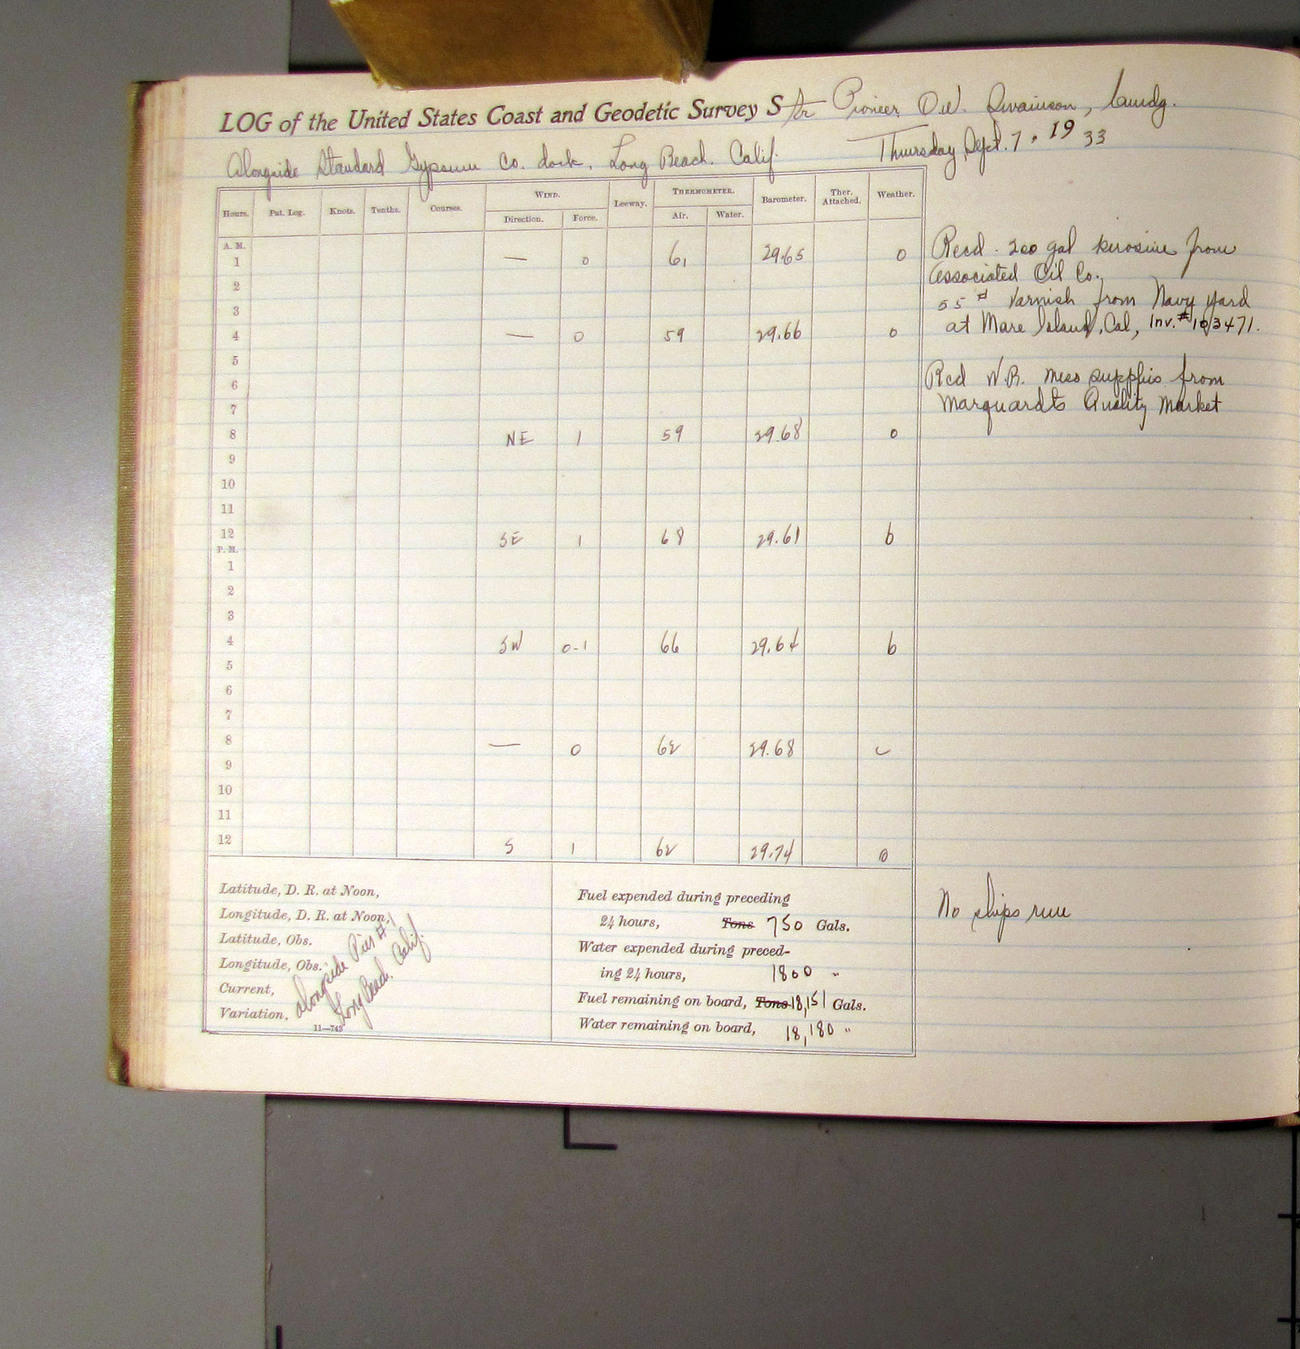 LOG of the United States Coast and Geodetic Survey Str Pioneer, O.W. Swainson, Comdg.
Alongside Standard Gypsum Co. dock, Long Beach, Calif. Thursday Sept. 7, 1933
Hours. Pat. Log. Knots. Tenths. Courses. WIND. Direction. Force. Leeway. THERMOMETER. Air. Water. Barometer. Ther. Attached. Weather.
A. M.
1 — 0 61 29.65 o
2
3
4 — 0 59 29.66 o
5
6
7
8 NE 1 59 29.68 o
9
10
11
12 SE 1 68 29.61 b
P. M.
1
2
3
4 SW 0-1 66 29.64 b
5
6
7
8 — 0 62 29.68 c
9
10
11
12 S 1 62 29.74 o
Recd. 200 gal kerosine from
Associated Oil Co.
55 # varnish from Navy Yard
at Mare Island, Cal, Inv. # 103471.
Recd W.R. mess supplies from
Marquardts Quality Market
No ships run
Latitude, D. R. at Noon,
Longitude, D. R. at Noon,
Latitude, Obs.
Longitude, Obs.
Current,
Variation,
alongside Pier #1
Long Beach, Calif.
11—743
Fuel expended during preceding
24 hours, Tons 750 Gals.
Water expended during preced-
ing 24 hours, 1800 "
Fuel remaining on board, Tons 18,151 Gals.
Water remaining on board, 18,180 "